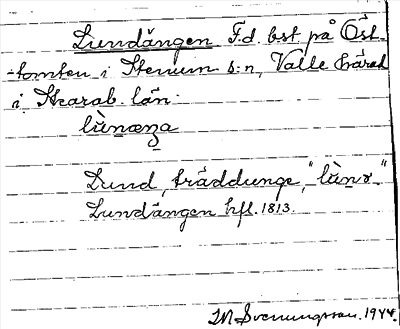 Lundängen F.d. bst på Öst-
-tomten i Stenum s:n, Valle härad
i Skarab. län.
lùnæŋa
Lund, träddunge, "lùnd"
Lundängen hfl. 1813.
I M Svenungsson. 1944.